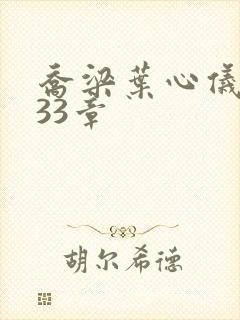 乔梁葉心儀
33章
胡尔希德